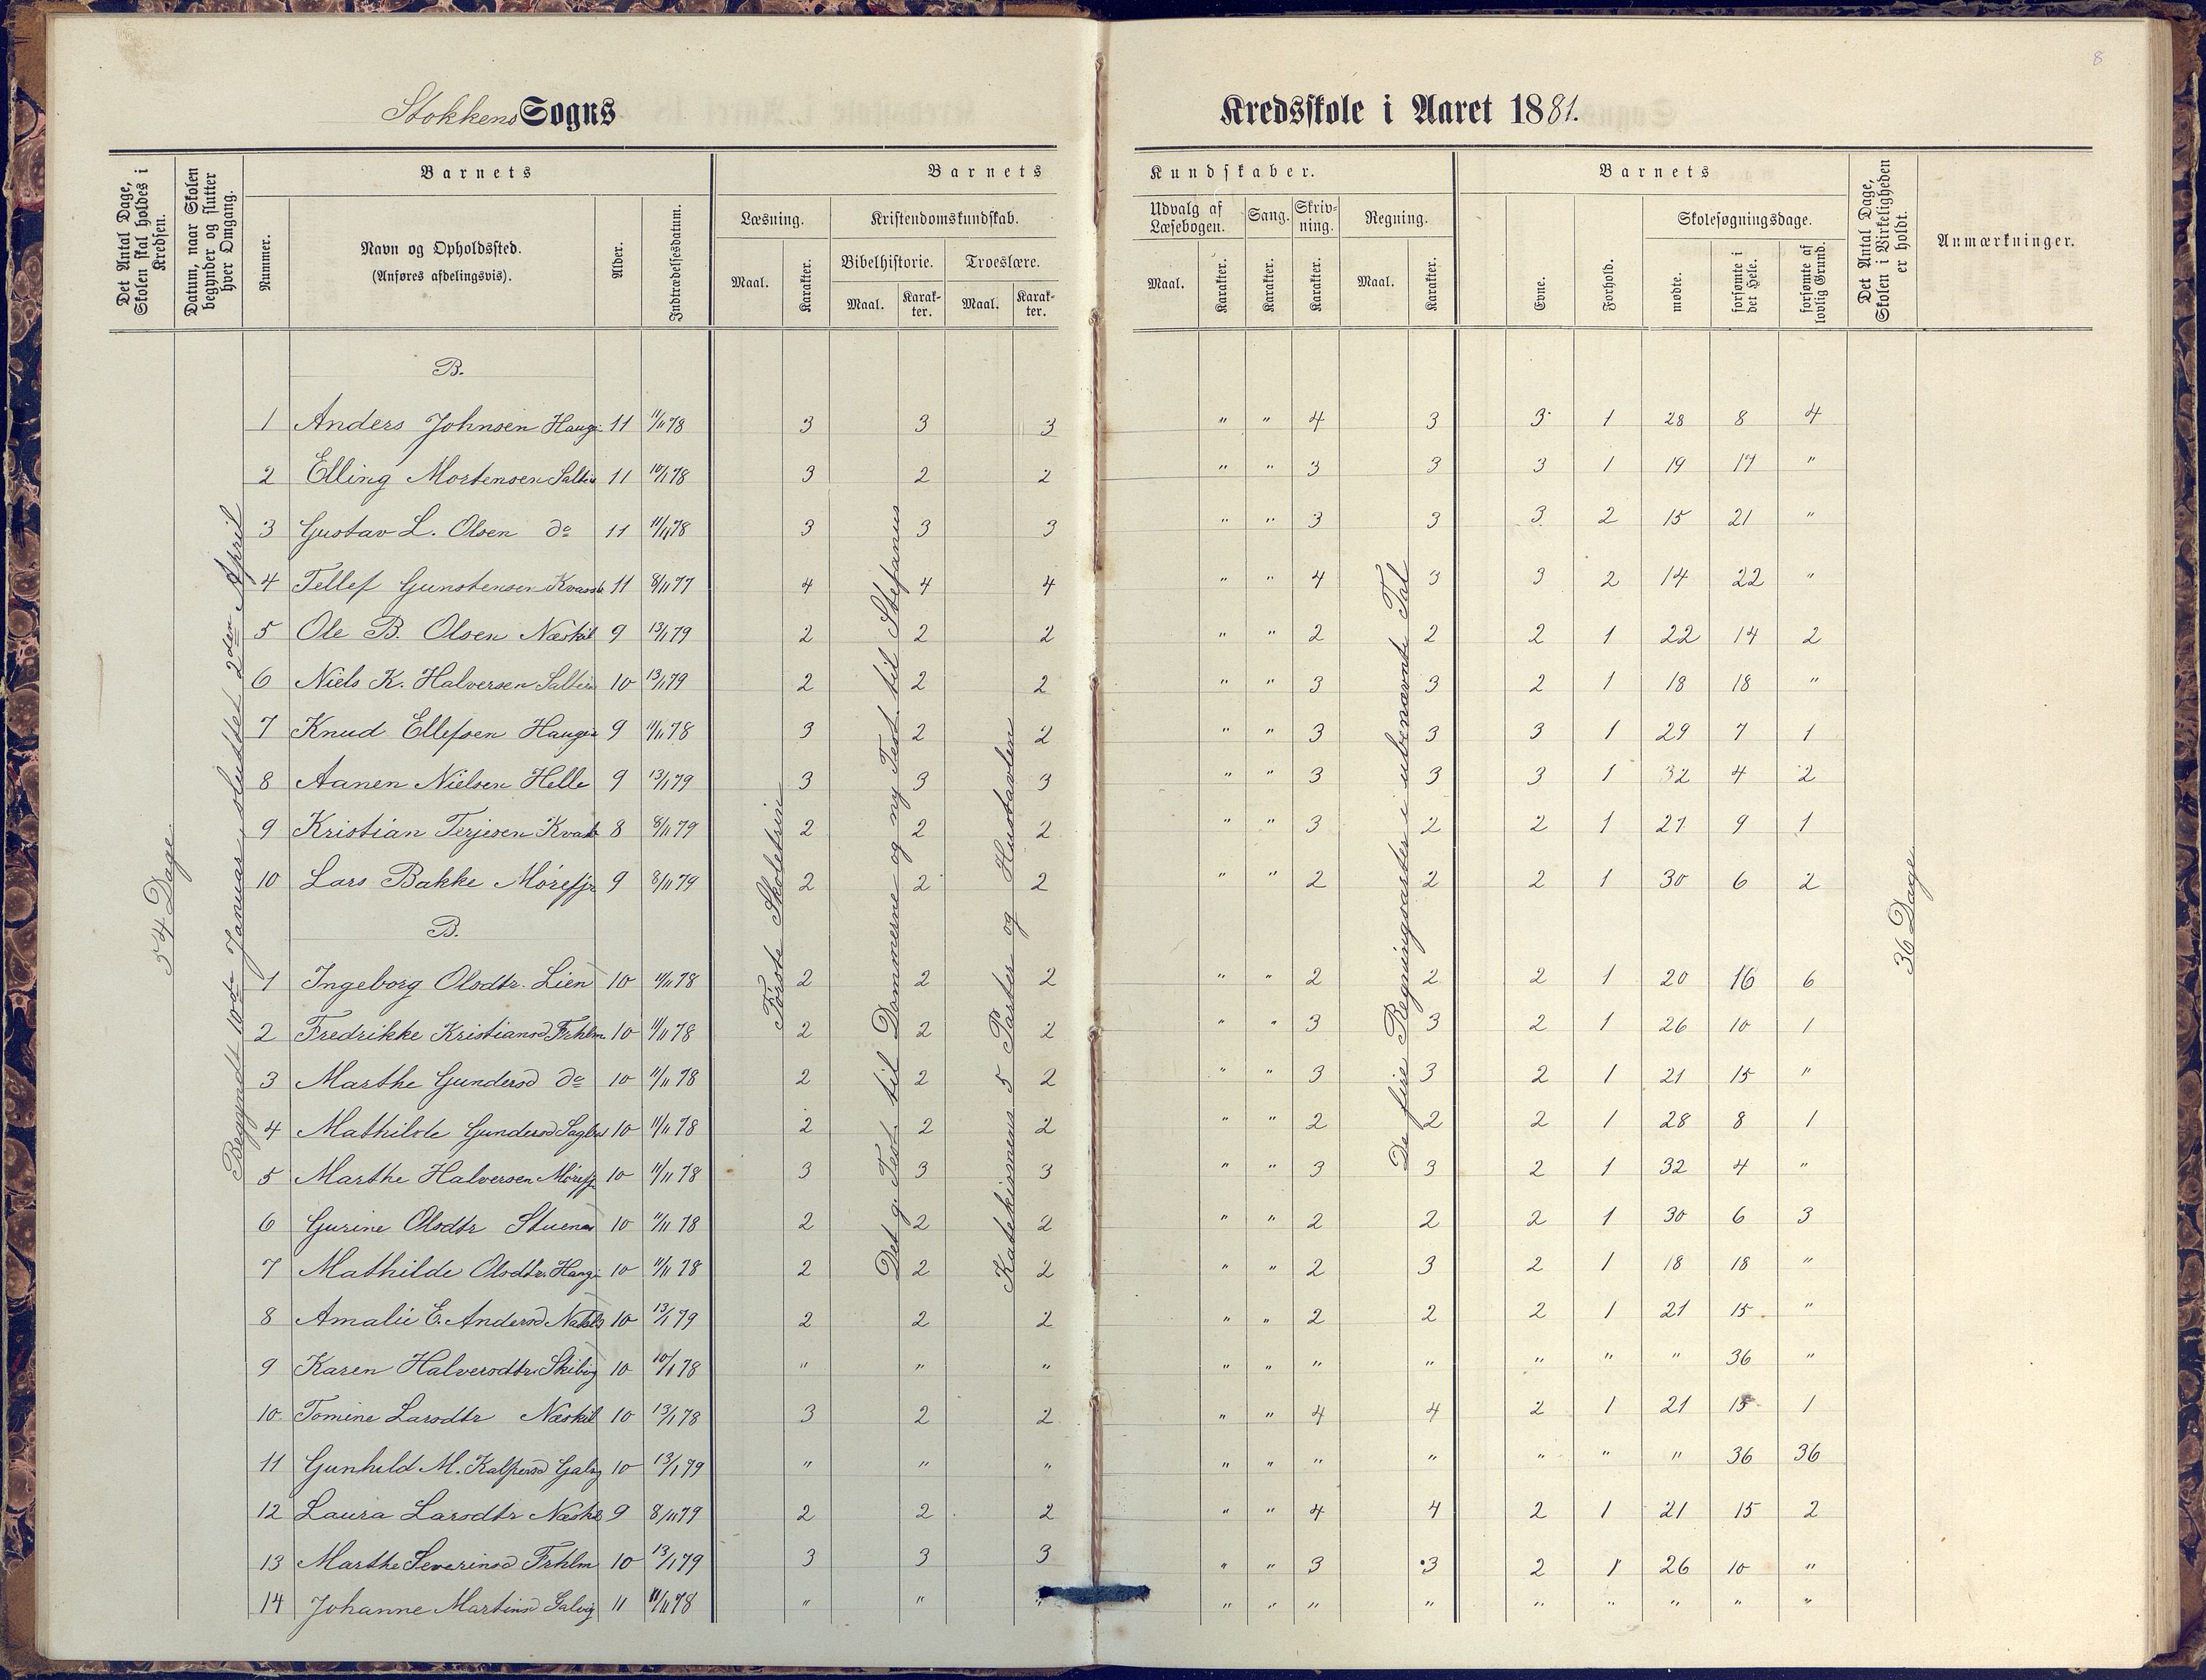 8
Stokkens Sogns Kredsskole i Aaret 1881.
Det Antal Dage, Skolen skal holdes i Kredsen.
Datum, naar Skolen begynder og slutter hver Omgang.
Barnets
Nummer.
Navn og Opholdssted.
(Anføres afdelingsvis).
Alder.
Indtrædelsesdatum.
Barnets Kundskaber.
Læsning.
Maal. Karakter.
Kristendomskundskab.
Bibelhistorie. Troeslære.
Maal. Karakter. Maal. Karakter.
Udvalg af Læsebogen.
Maal. Karakter.
Sang.
Karakter.
Skrivning.
Karakter.
Regning.
Maal. Karakter.
Barnets
Evne.
Forhold.
Skolesøgningsdage.
mødte.
forsømte i det Hele.
forsømte af lovlig Grund.
Det Antal Dage, Skolen i Virkeligheden er holdt.
Anmærkninger.
54 Dage.
Begyndt 10de Januar, sluttet 2den April
Første Skoletrin
Det g. Test. til Dommerne og ny Test. til Stefanus
Katekismens 5 Parter og Hustavlen
De fire Regningsarter i ubenævnte Tal
36 Dage
B.
1 Anders Johnsen Hauge 11 11/11 78 3 3 3 " " 4 3 3 1 28 8 4
2 Elling Mortensen 11 10/1 78 3 2 2 " " 3 3 3 1 19 17 "
3 Gustav L. Olsen do 11 11/11 78 3 3 3 " " 3 3 3 2 15 21 "
4 Tellef Gunstensen 11 8/11 77 4 4 4 " " 4 3 3 2 14 22 "
5 Ole B. Olsen Næskil 9 13/1 79 2 2 2 " " 2 2 2 1 22 14 2
6 Niels K. Halversen 10 13/1 79 2 2 2 " " 3 3 2 1 18 18 "
7 Knud Ellefsen 9 11/11 78 3 2 2 " " 3 3 3 1 29 7 1
8 Aanen Nielsen Helle 9 13/1 79 3 3 3 " " 3 3 3 1 32 4 2
9 Kristian Terjesen 8 8/11 79 2 2 2 " " 3 2 2 1 27 9 1
10 Lars Bakke Mørefjr 9 8/11 79 2 2 2 " " 2 2 2 1 30 6 2
B.
1 Ingeborg Olsdtr. Lien 10 11/11 78 2 2 2 " " 2 2 2 1 20 16 6
2 Fredrikke Kristiansd Frhlm 10 11/11 78 2 2 2 " " 3 3 2 1 26 10 1
3 Marthe Gundersd do 10 11/11 78 2 2 2 " " 3 3 2 1 21 15 "
4 Mathilde Gundersd 10 11/11 78 2 2 2 " " 2 2 2 1 28 8 1
5 Marthe Halversen Mørefj 10 11/11 78 3 3 3 " " 3 3 2 1 32 4 "
6 Gurine Olsdtr Stuenes 10 11/11 78 2 2 2 " " 2 2 2 1 30 6 3
7 Mathilde Olsdtr. 10 11/11 78 2 2 2 " " 2 3 2 1 18 18 "
8 Amalie E. Andersd 10 13/1 79 2 2 2 " " 2 2 2 1 21 15 "
9 Karen Halversdtr. 10 10/1 78 " " " " " " " " " " 36 "
10 Tomine Larsdtr Næskil 10 13/1 78 3 2 2 " " 4 4 2 1 21 15 1
11 Gunhild M. 10 13/1 79 " " " " " " " " " " 36 36
12 Laura Larsdtr Næskil 9 8/11 79 2 2 2 " " 4 4 2 1 21 15 2
13 Marthe Severinsd Frhlm 10 13/1 79 3 3 3 " " 3 3 2 1 26 10 "
14 Johanne Martinsd 11 11/11 78 " " " " " " " " " " " "